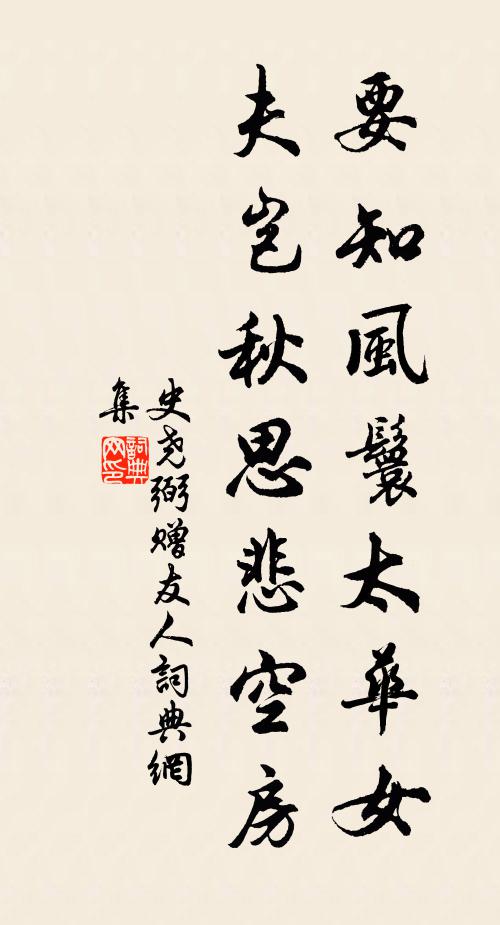 要知風鬟太華女
夫豈秋思悲空房
史尧弼贈友人詞典網
集
詞典
网印